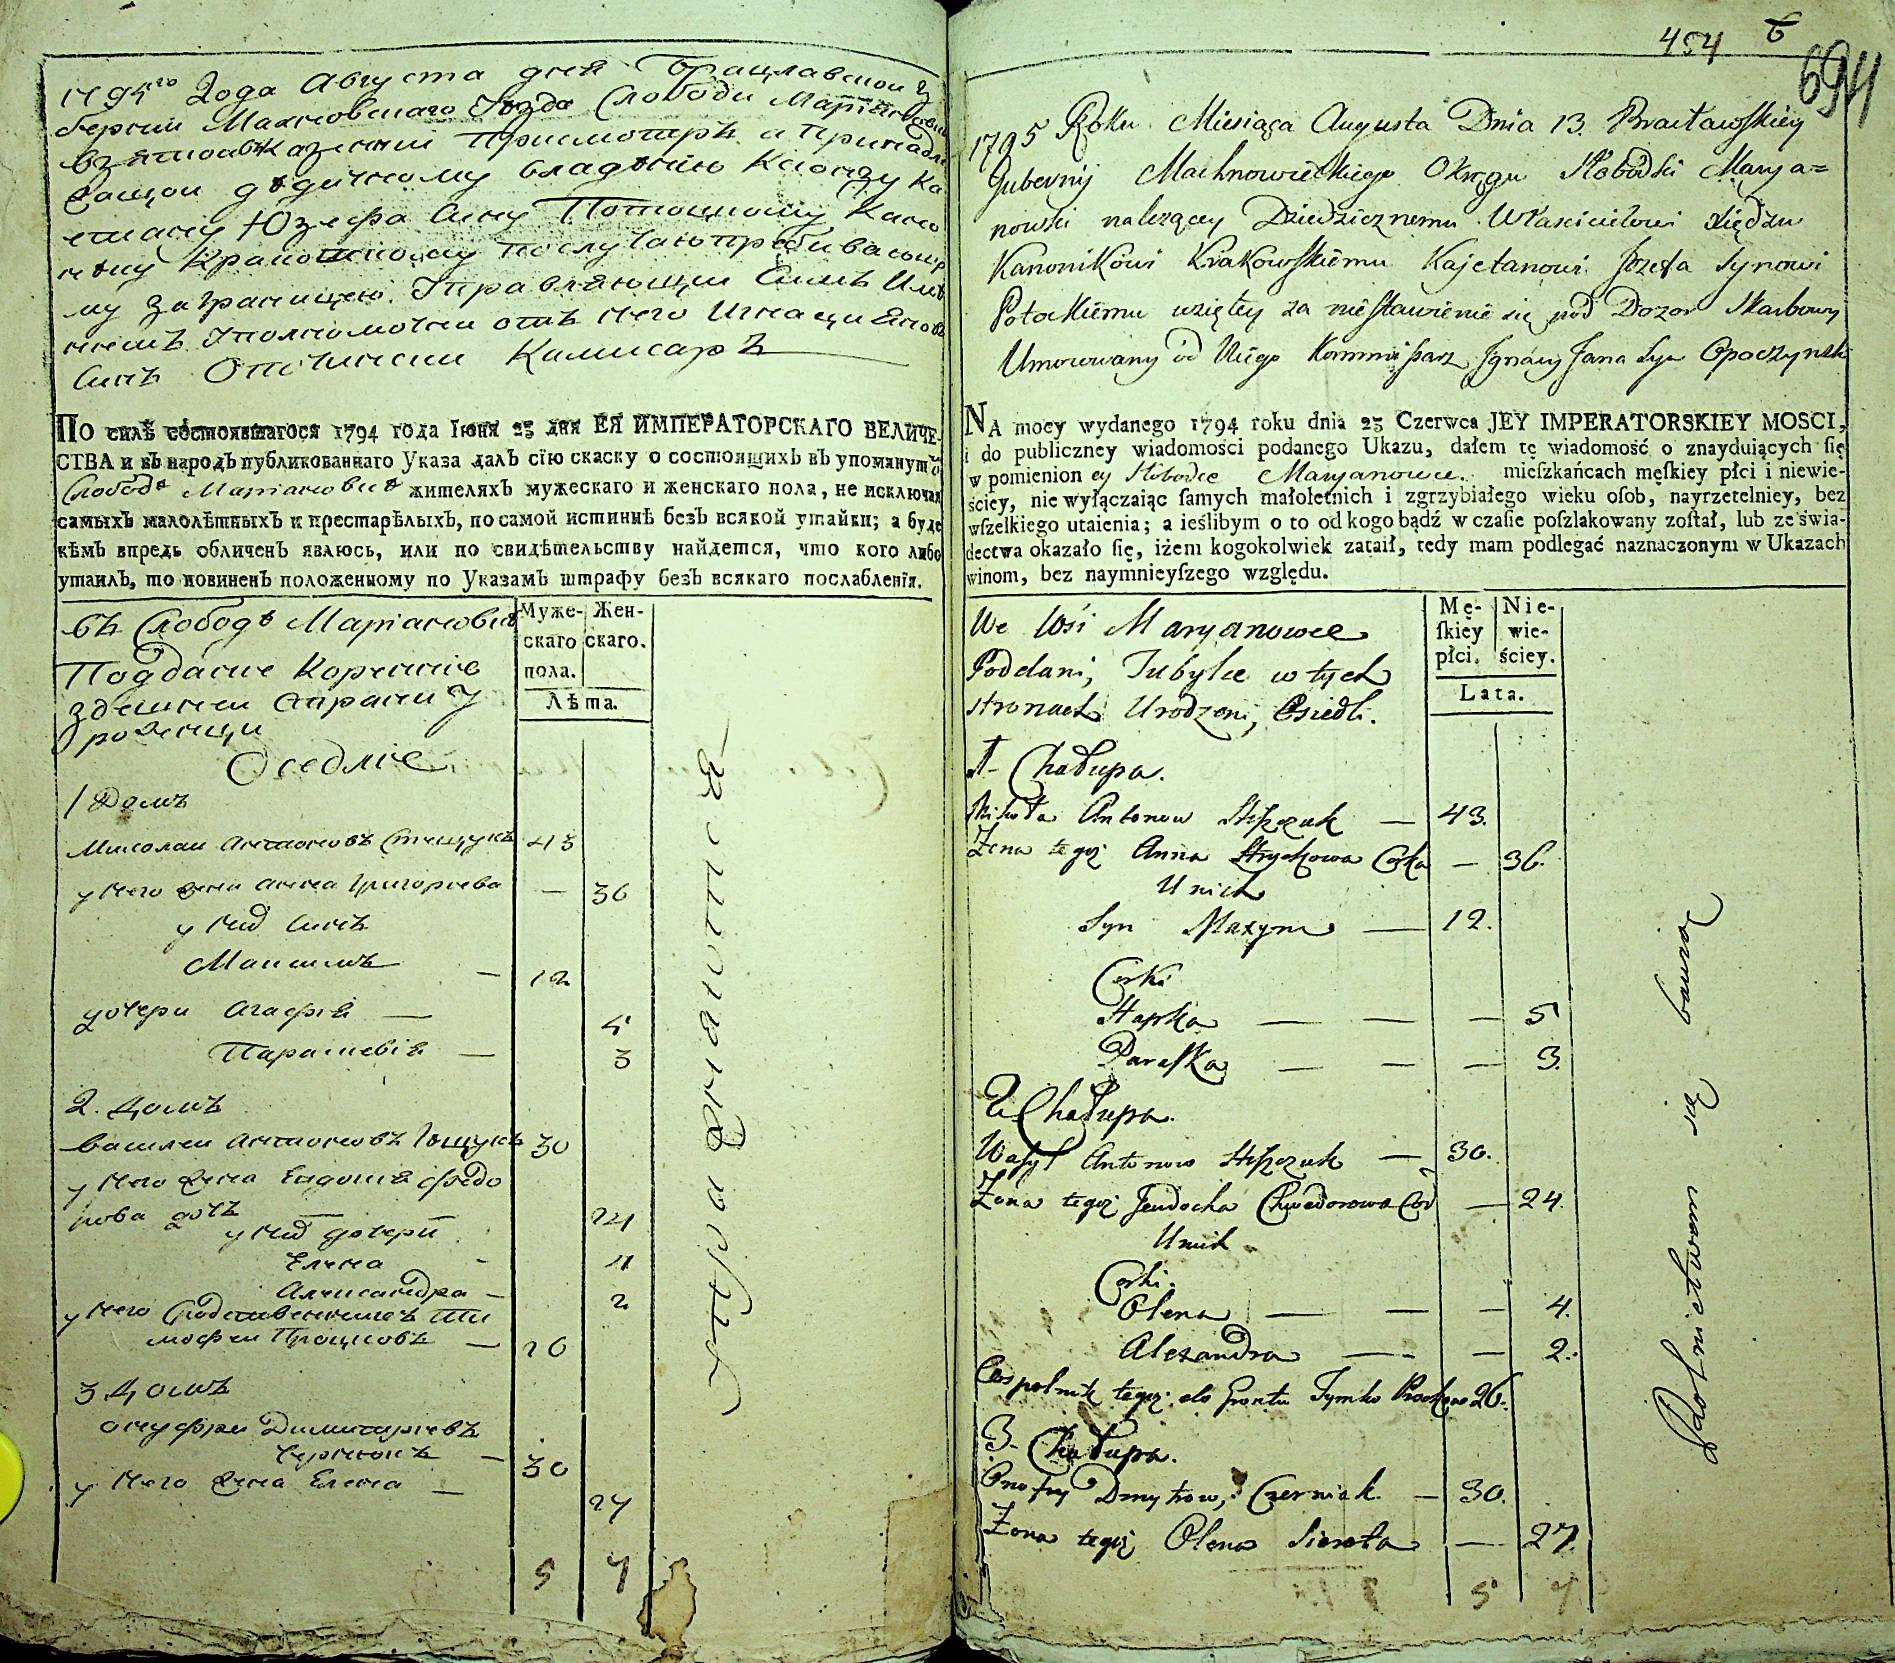 1795го Года Августа дня Брацлавской Гу
берний Махновского Уезда Слободи Марiановки
взятоавъ Казенний Присмотръ и Принадле
жащои дѣдичному владѣнiю Ксіонзу Ка
етану Юзефа Сину Потоцкому Кано
нѣку Краковскому послучаю пребивающе
му заграницею Управляющи Симъ Име
ниемъ Уполномочни отъ него Игнаци Яновъ
Синъ Опочински Камисаръ
По силѣ состоявшагося 1794 года Iюня 23 дня ЕЯ ИМПЕРАТОРСКАГО ВЕЛИЧЕ-
СТВА и въ народъ публикованнаго Указа далъ сiю скаску о состоящихъ въ упомянутой
Слободѣ Марiановкѣ жителяхъ мужескаго и женскаго пола, не исключая
самыхъ малолѣтныхъ и престарѣлыхъ, по самой истиннѣ безъ всякой утайки; а буде
кѣмъ впредь обличенъ явлюсь, или по свидѣтельству найдется, что кого либо
утаилъ, то повиненъ положенному по Указамъ штрафу безъ всякаго послабленiя.
Муже- Жен-
скаго скаго.
пола.
Лѣта.
въ Слободѣ Марiановкѣ
Поддание Кореннiе
здешнеи страни У
роженци
Оседлiе
1 Домъ
Миколаи Антоновъ Стещукъ 43
у него жена анна Григорiева — 36
у них Синъ
Максимъ — 12
дочери Агафiя — 5
Парашевiя — 3
2. Домъ
Василеи Антоновъ Стещукъ 30
у него жена Евдокiя Федо
рова дочъ — 24
у них дочери
Елена - 4
Александра — 2
у него Родственникъ Ти
мофеи Процковъ — 26
3 Домъ
онуфри Димитрiевъ
Чернюкъ — 30
у него жена Елена — 27
5 7
454 6
694
1795 Roku Miesiąca Augusta Dnia 13. Bracławskiey
Gubernij Machnowieckiego Okręgu Słobodki Marya=
nowki należącey Dziedzicznemu Właścicielowi Xiędzu
Kanonikowi Krakowskiemu Kajetanowi Józefa Synowi
Potockiemu wziętey za niestawienie się pod Dozor Skarbowy
Umocowany od Niego Kommissarz Ignacy Jana Syn Opoczynski
NA mocy wydanego 1794 roku dnia 23 Czerwca JEY IMPERATORSKIEY MOSCI,
i do publiczney wiadomości podanego Ukazu, dałem tę wiadomość o znayduiących ſię
w pomienion ey Słobodce Maryanowce. mieſzkańcach męſkiey płci i niewie-
ściey, nie wyłączaiąc ſamych małoletnich i zgrzybiałego wieku oſob, nayrzetelniey, bez
wſzelkiego utaienia; a ieślibym o to od kogo bądź w czaſie poſzlakowany zoſtał, lub ze świa-
dectwa okazało ſię, iżem kogokolwiek zataił, tedy mam podlegać naznaczonym w Ukazach
winom, bez naymnieyſzego względu.
Mę- Nie-
ſkiey wie-
płci. ściey.
Lata.
We Wsi Maryanowce
Poddani, Tubylce w tych
stronach Urodzeni, Osiedli.
1. Chałupa.
Mikoła Antonow Steszczuk — 43.
Żona tegoż Anna Hryckowa Corka — 36.
U nich
Syn Maxym — 12.
Corki
Hapka — — — 5
Paraska — — — 3.
2. Chałupa.
Wasyl Antonow Steszczuk — 30.
Żona tegoż Jewdocha Chwedorowa Cor — 24.
U nich
Corki.
Olena — — — 4.
Alexandra — — 2.
Wspolnik tegoż do Gruntu Tymko Prockow 26.
3. Chałupa.
Onofry Dmytrow, Czerniuk — 30.
Żona tegoż Olena Sierota — 27.
5 7
Rolnictwem się bawią